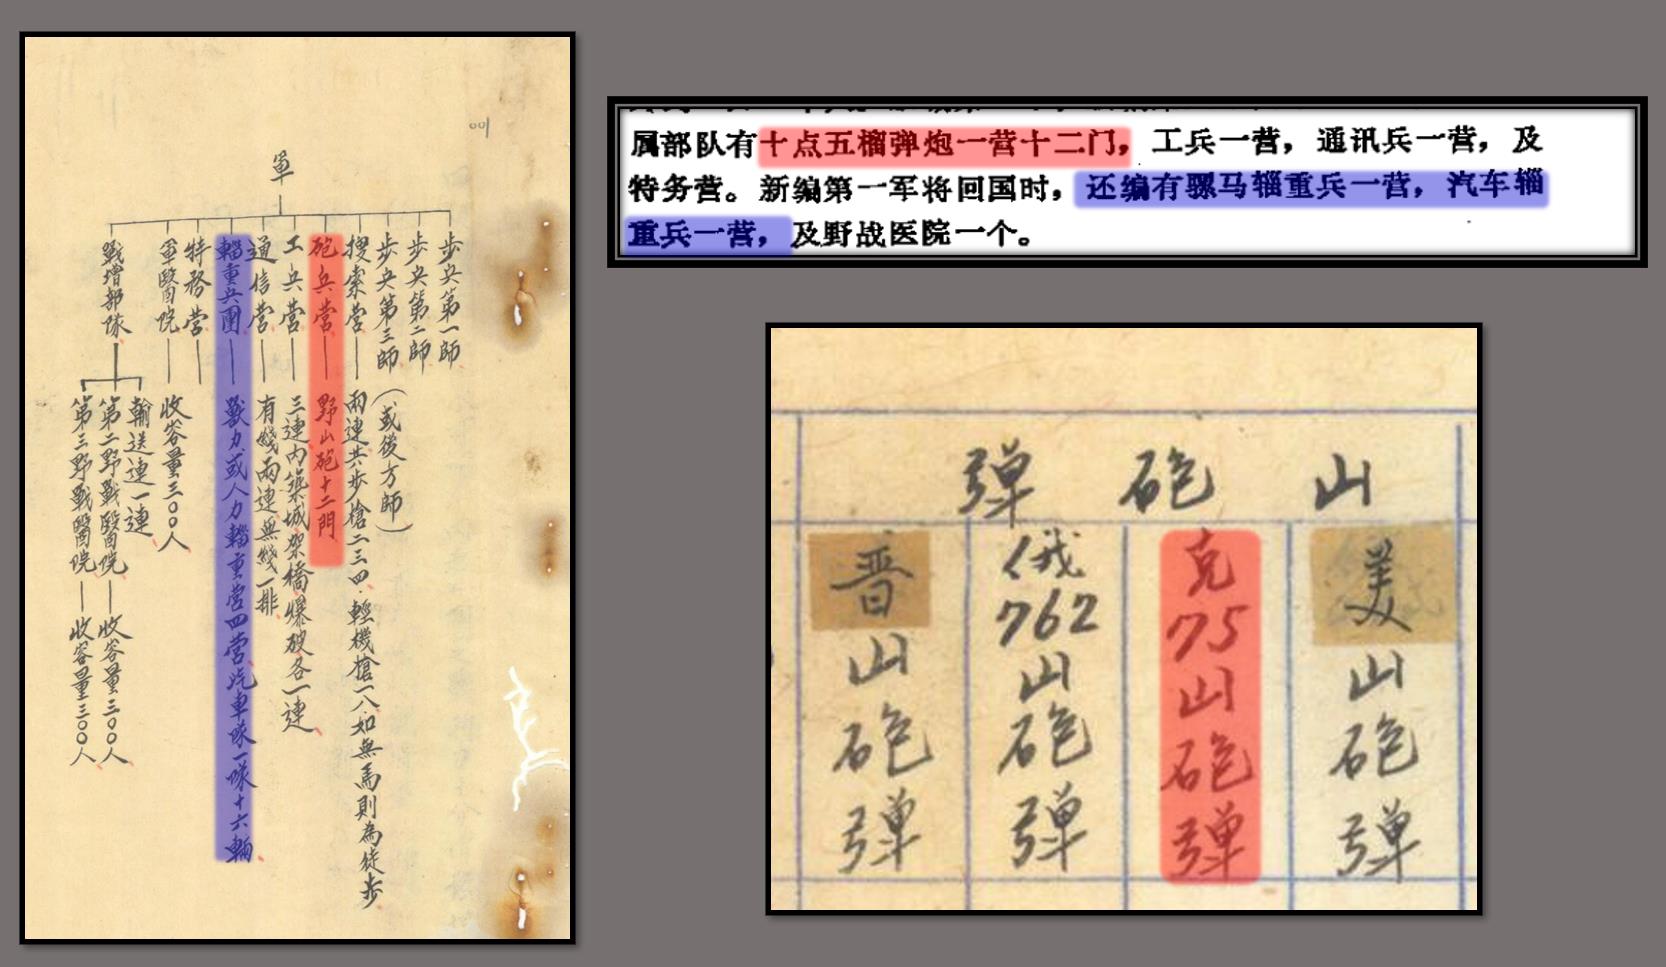 軍
步兵第一師
步兵第二師
步兵第三師(或後方師)
搜索營—兩連共步槍二三四.輕機槍一八.如無馬則為徒步
砲兵營—野山砲十二門
工兵營—三連內築城架橋爆破各一連
通信營—有綫兩連無綫一排
輜重兵團—獸力或人力輜重營四營汽車隊一隊十六輛
特務營—
軍醫院—收容量三〇〇人
戰增部隊
輸送連一連
第二野戰醫院—收容量三〇〇人
第三野戰醫院—收容量三〇〇人
属部队有十点五榴弹炮一营十二门，工兵一营，通讯兵一营，及
特务营。新编第一军将回国时，还编有骡马辎重兵一营，汽车辎
重兵一营，及野战医院一个。
山砲弹
美山砲弹
克75山砲弹
俄762山砲弹
晋山砲弹